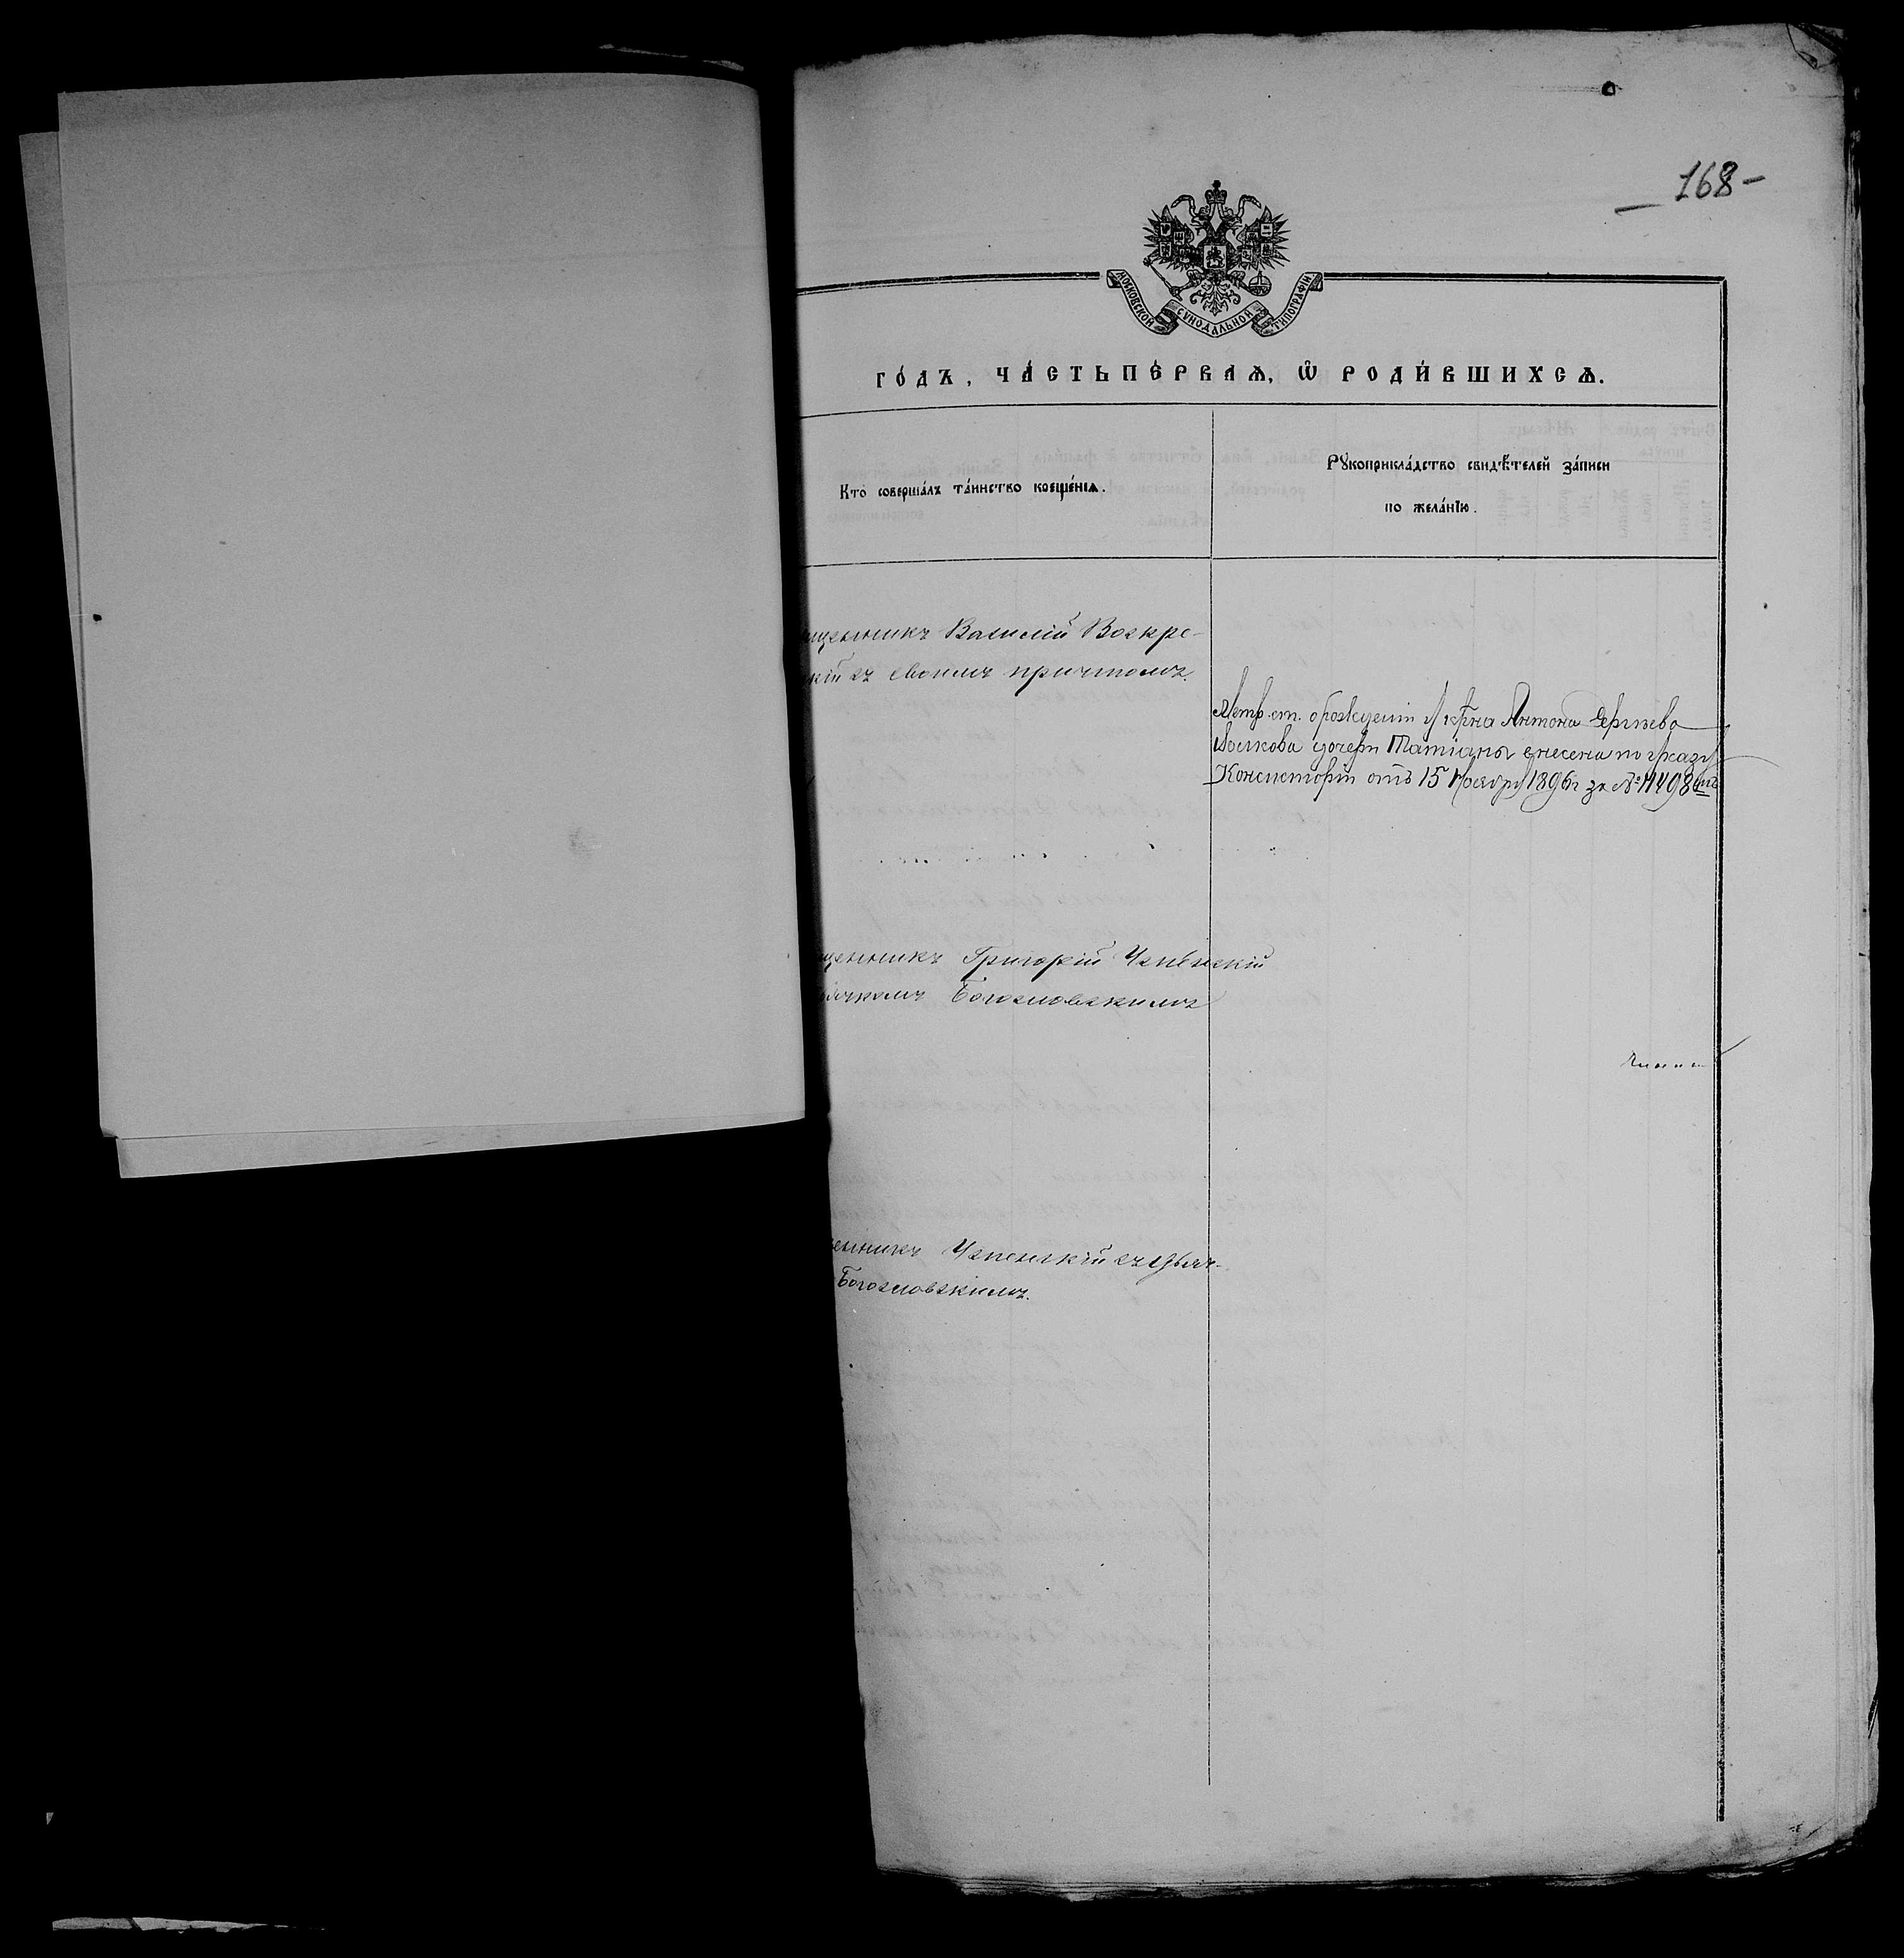 168
МОСКОВСКОЙ СѴНОДАЛЬНОЙ ТИПОГРАФІИ
го́дъ, ча́сть пе́рваѧ, ѡ҆ роди́вшихсѧ.
Кто̀ соверша́лъ та́инство креще́нїѧ.
Рꙋкоприкла́дство свидѣ́телей за́писи
по жела́нїю.
щенникъ Василій Воскре-
кій съ своимъ причтомъ.
Метр. ст. о рожденіи у кр-на Антона Сергѣева
дочери Татіаны внесена по указу
Консисторіи отъ 15 Ноября 1896 г за № 11498
щенникъ Григорій Успенскій
ячкомъ Богословскимъ
енникъ Успенскій съ дьяч-
Богословскимъ.